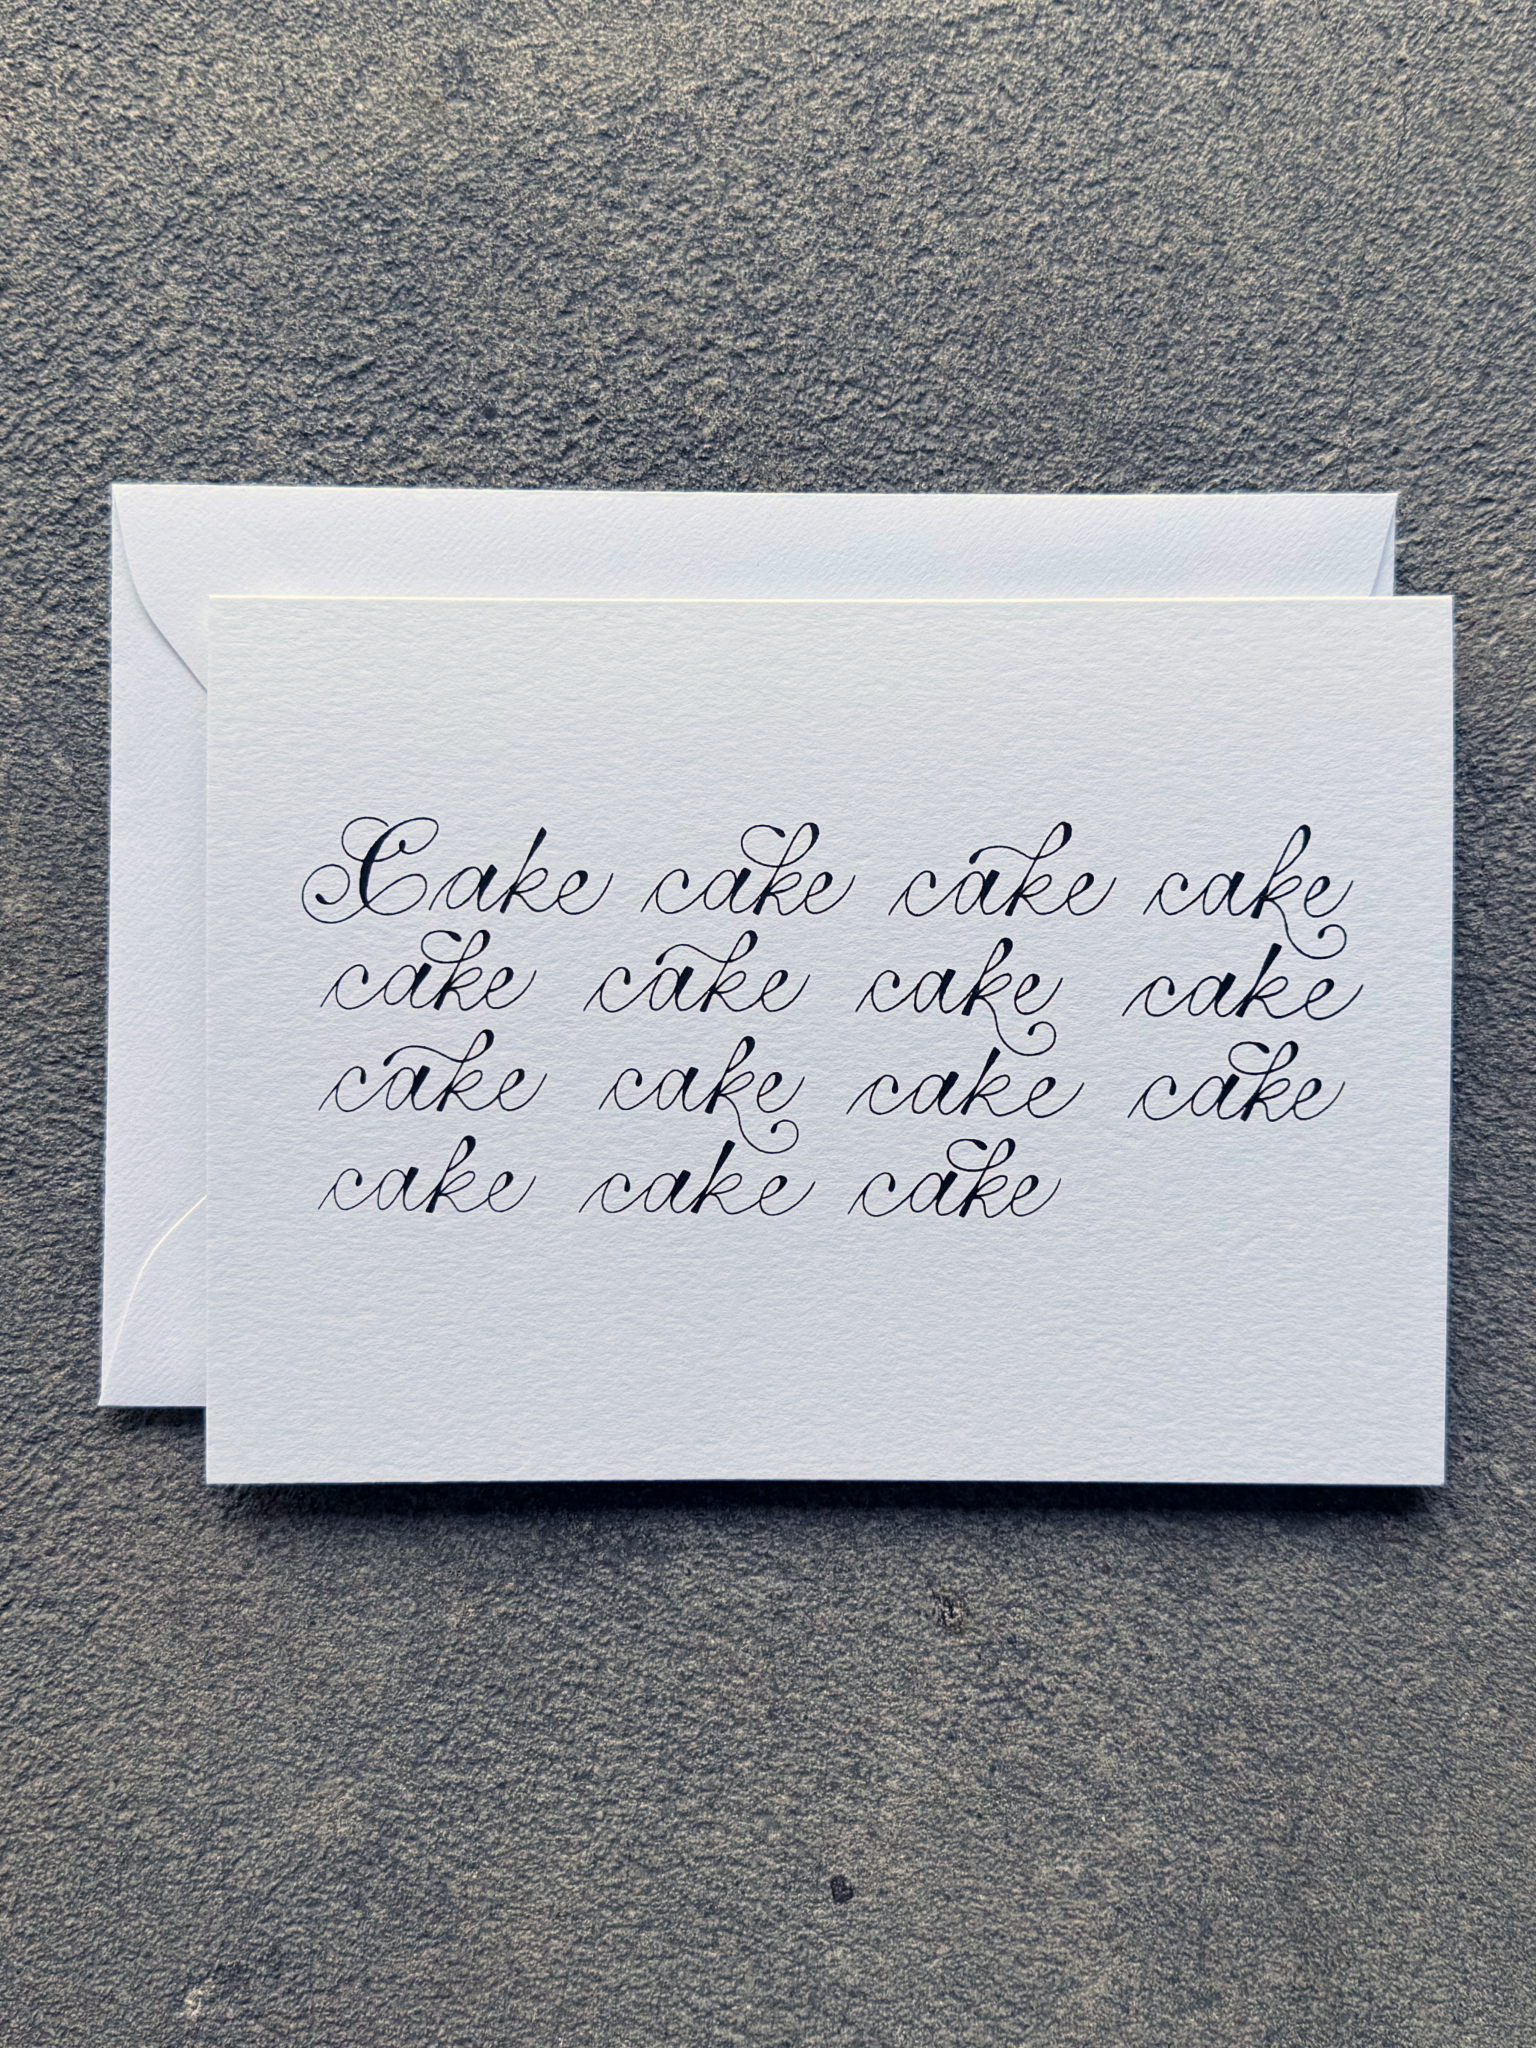 Cake cake cake cake
cake cake cake cake
cake cake cake cake
cake cake cake